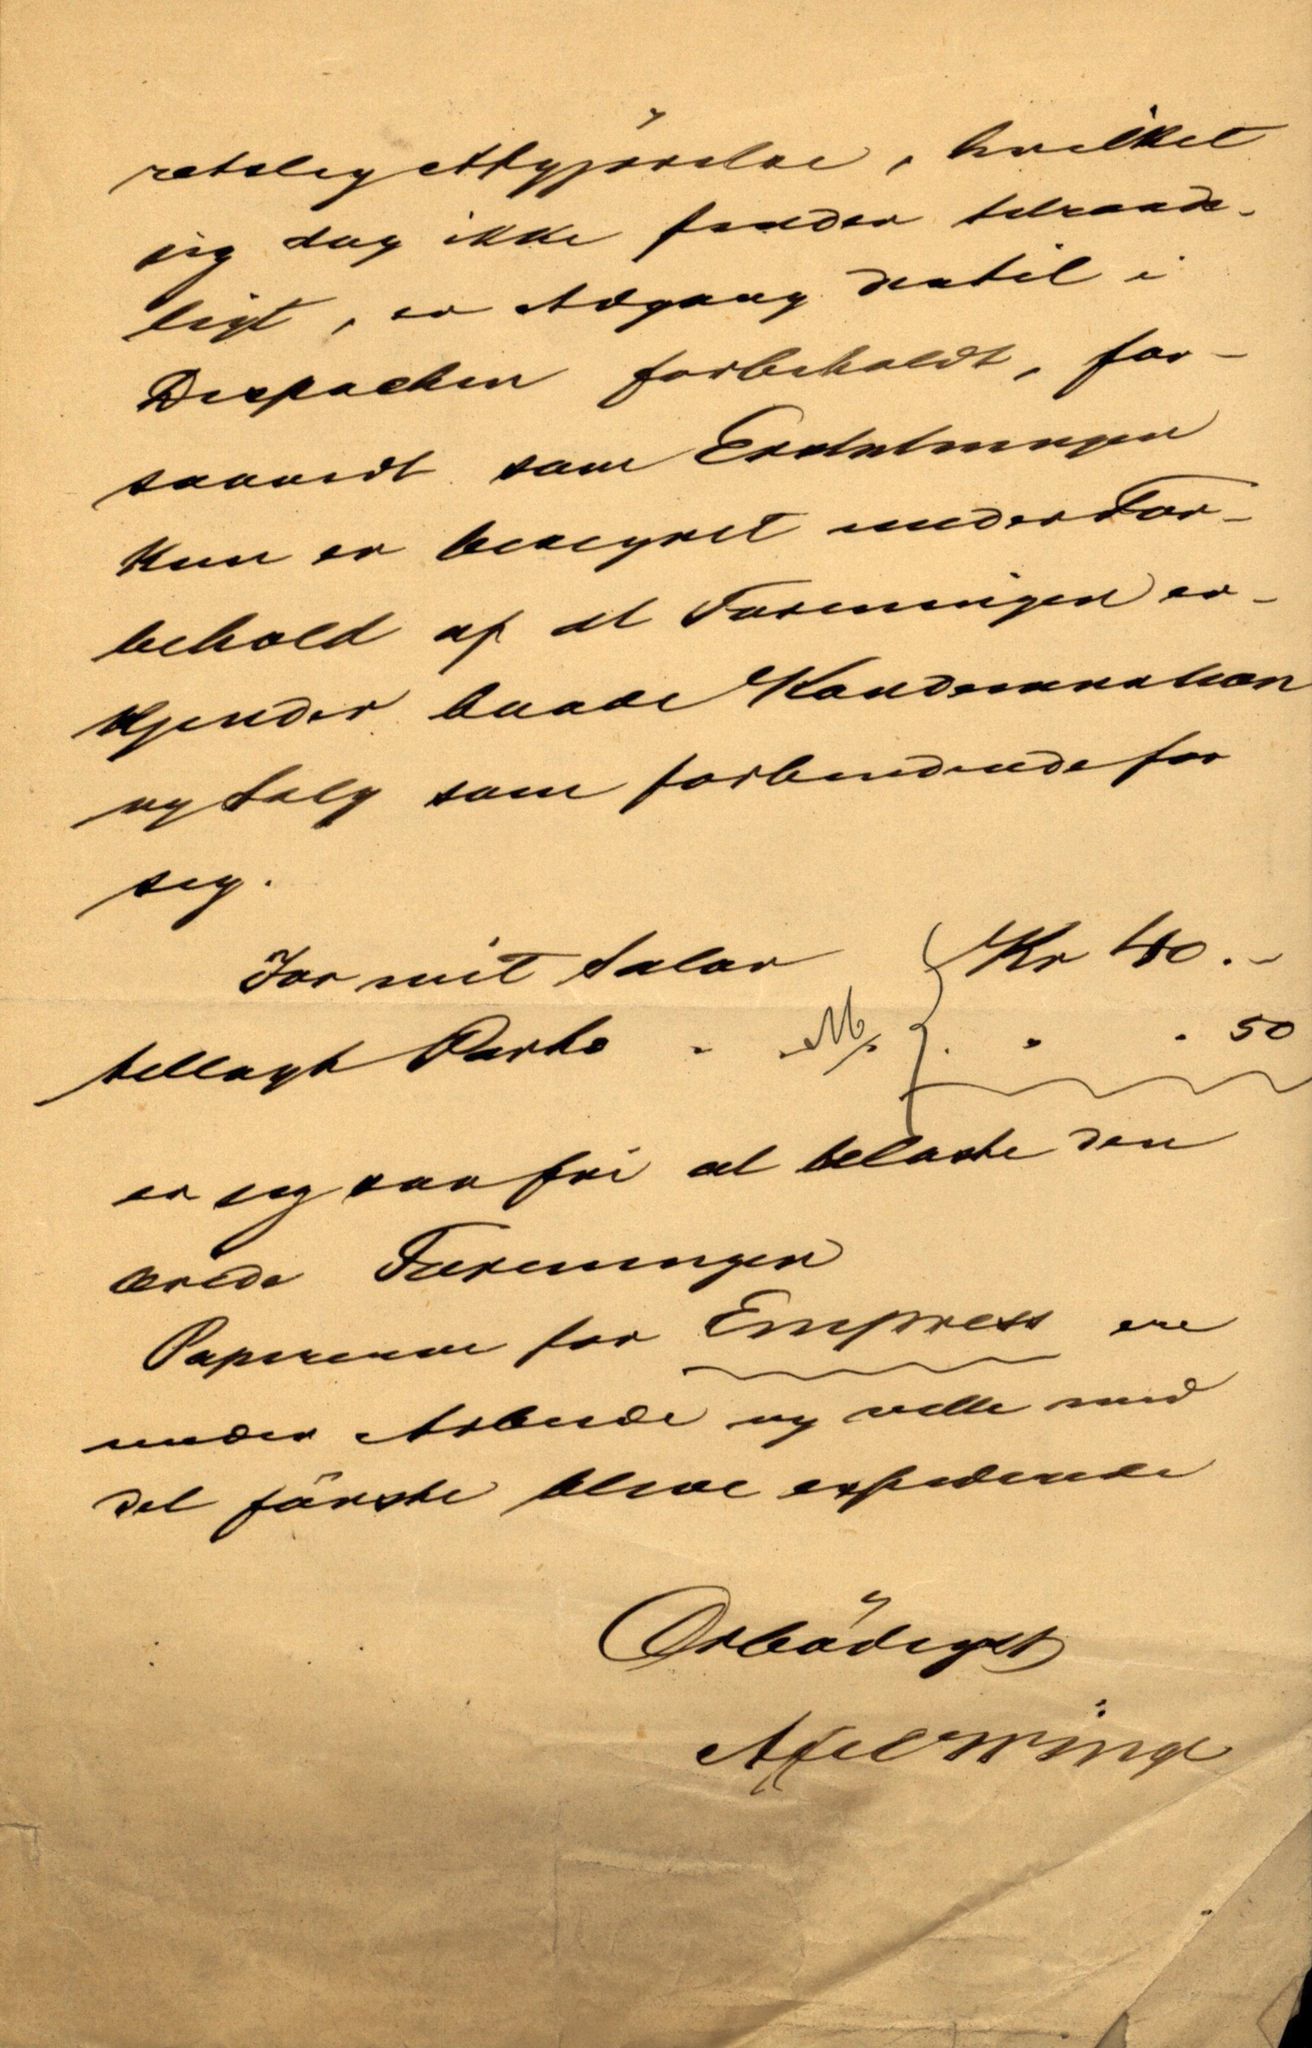 retslig Afgjörelse, hvilket
jeg dog ikke finder tilraade-
ligt, er Adgang dertil i
Dispachen forbeholdt, for-
saavidt som Erstatningen
kun er beregnet under For-
behold af at Foreningen er-
kjender baade Kondemnation
og Salg som forbindende for
sig.
For mit Salær Kr 40.-
tillagt Porto " " . 50
er jeg saa fri at belaste den
ærede Foreningen
Papirerne for Empress ere
under Arbeide og ville med
det förste blive expederede
Ærbödigst
Axel Winge